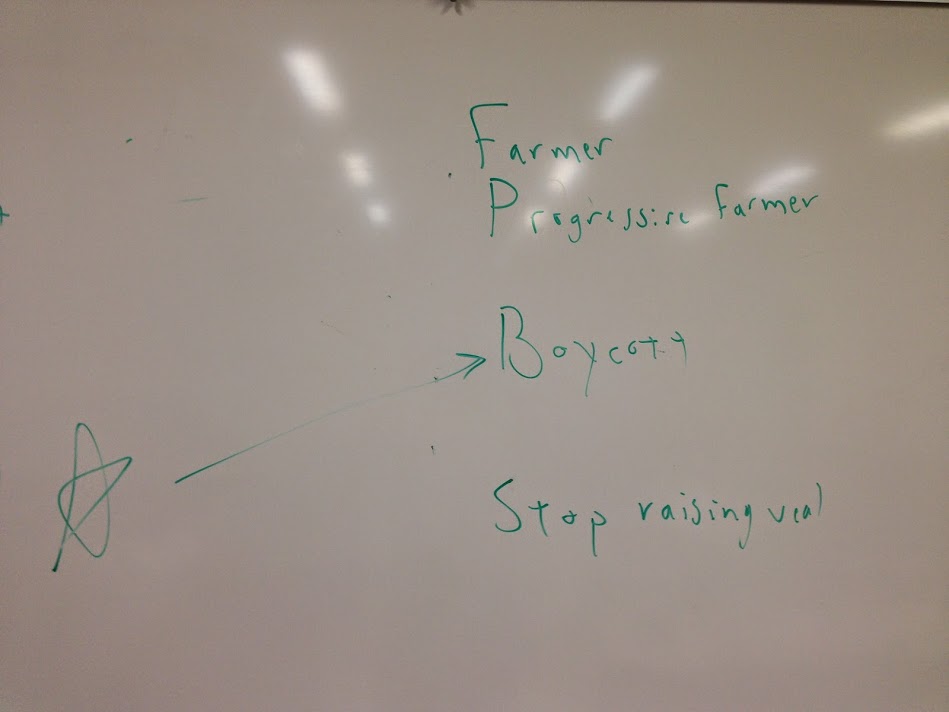 Farmer
Progressive farmer
Boycott
Stop raising veal